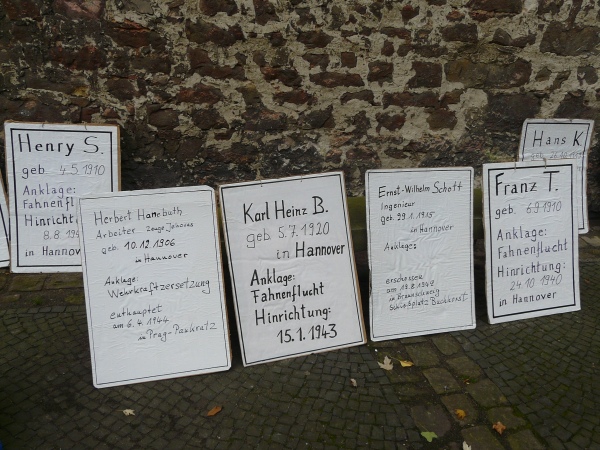 Henry S.
geb. 4.5.1910
Anklage:
Fahnenfl
Hinricht
8.8.19
in Hann
Herbert
Arbeiter Zeuge Jehovas
geb. 10.12.1906
in Hannover
Anklage:
Wehrkraftzersetzung
enthauptet
am 6.4.1944
in Prag-Pankratz
Karl Heinz B.
geb 5.7.1920
in Hannover
Anklage:
Fahnenflucht
Hinrichtung:
15.1.1943
Ernst-Wilhelm Schott
Ingenieur
geb. 29.1.1915
in Hannover
Anklage:
erschossen
am
in Braunschweig
Schießplatz Buchhorst
Franz T.
geb. 6.9.1910
Anklage:
Fahnenflucht
Hinrichtung:
24.10.1940
in Hannover
Hans K
geb.